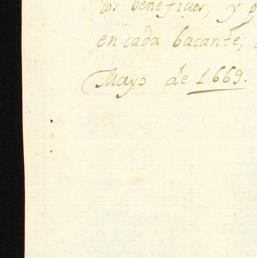 los beneficios, y p
en cada bacante,
Mayo de 1669.